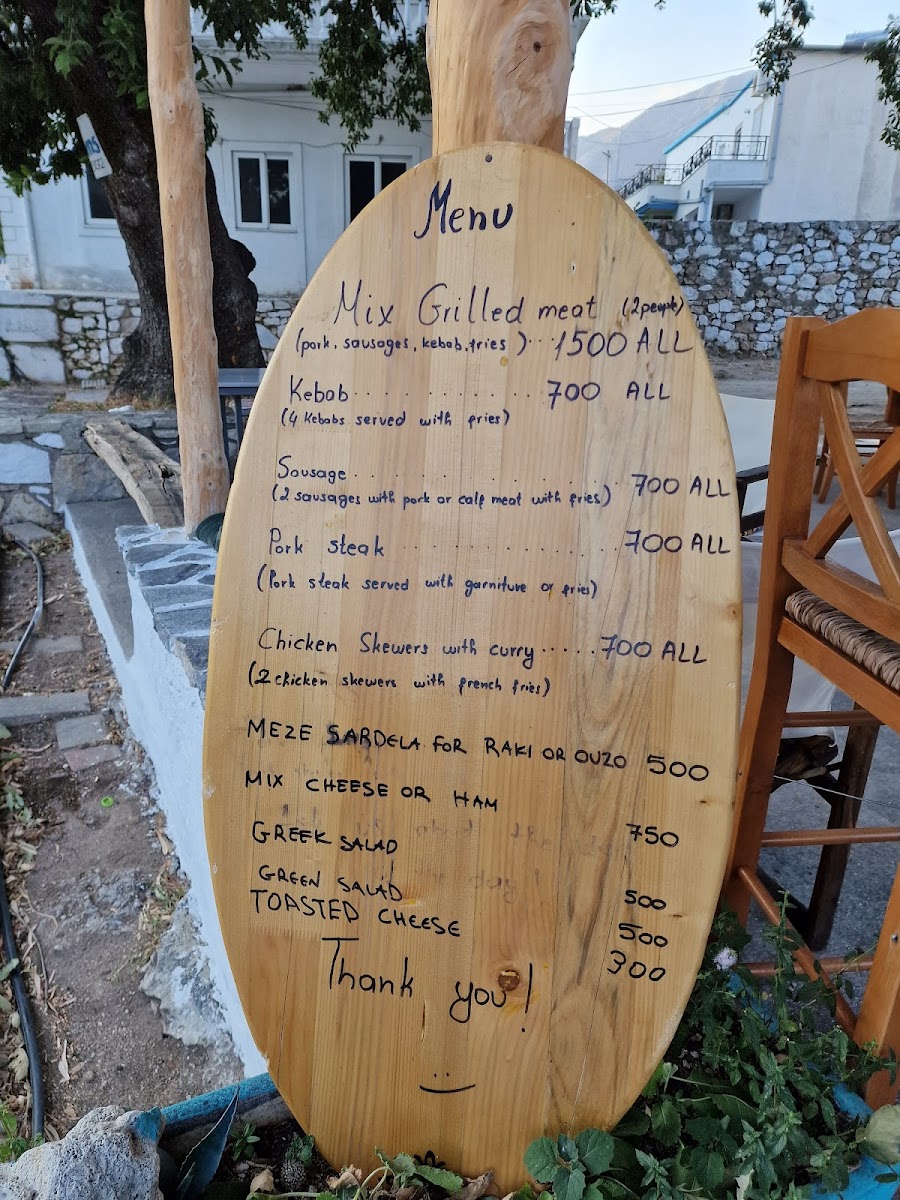 Menu
Mix Grilled meat (2people)
(pork, sausages, kebab, fries )...1500 ALL
Kebab.............700 ALL
(4 Kebabs served with fries)
Sausage.............700 ALL
(2 sausages with pork or calf meat with fries)
Pork steak.............700 ALL
(Pork steak served with garniture or fries)
Chicken Skewers with curry.....700 ALL
(2 chicken skewers with french fries)
MEZE SARDELA FOR RAKI OR OUZO 500
MIX CHEESE OR HAM 750
GREEK SALAD 500
GREEN SALAD 500
TOASTED CHEESE 300
Thank you!